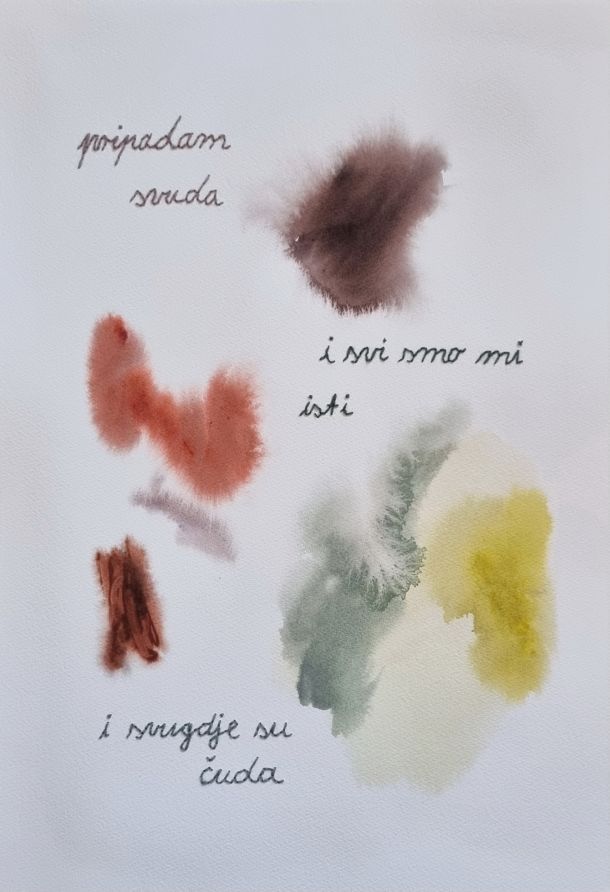 pripadam
svuda
i svi smo mi
isti
i svugdje su
čuda